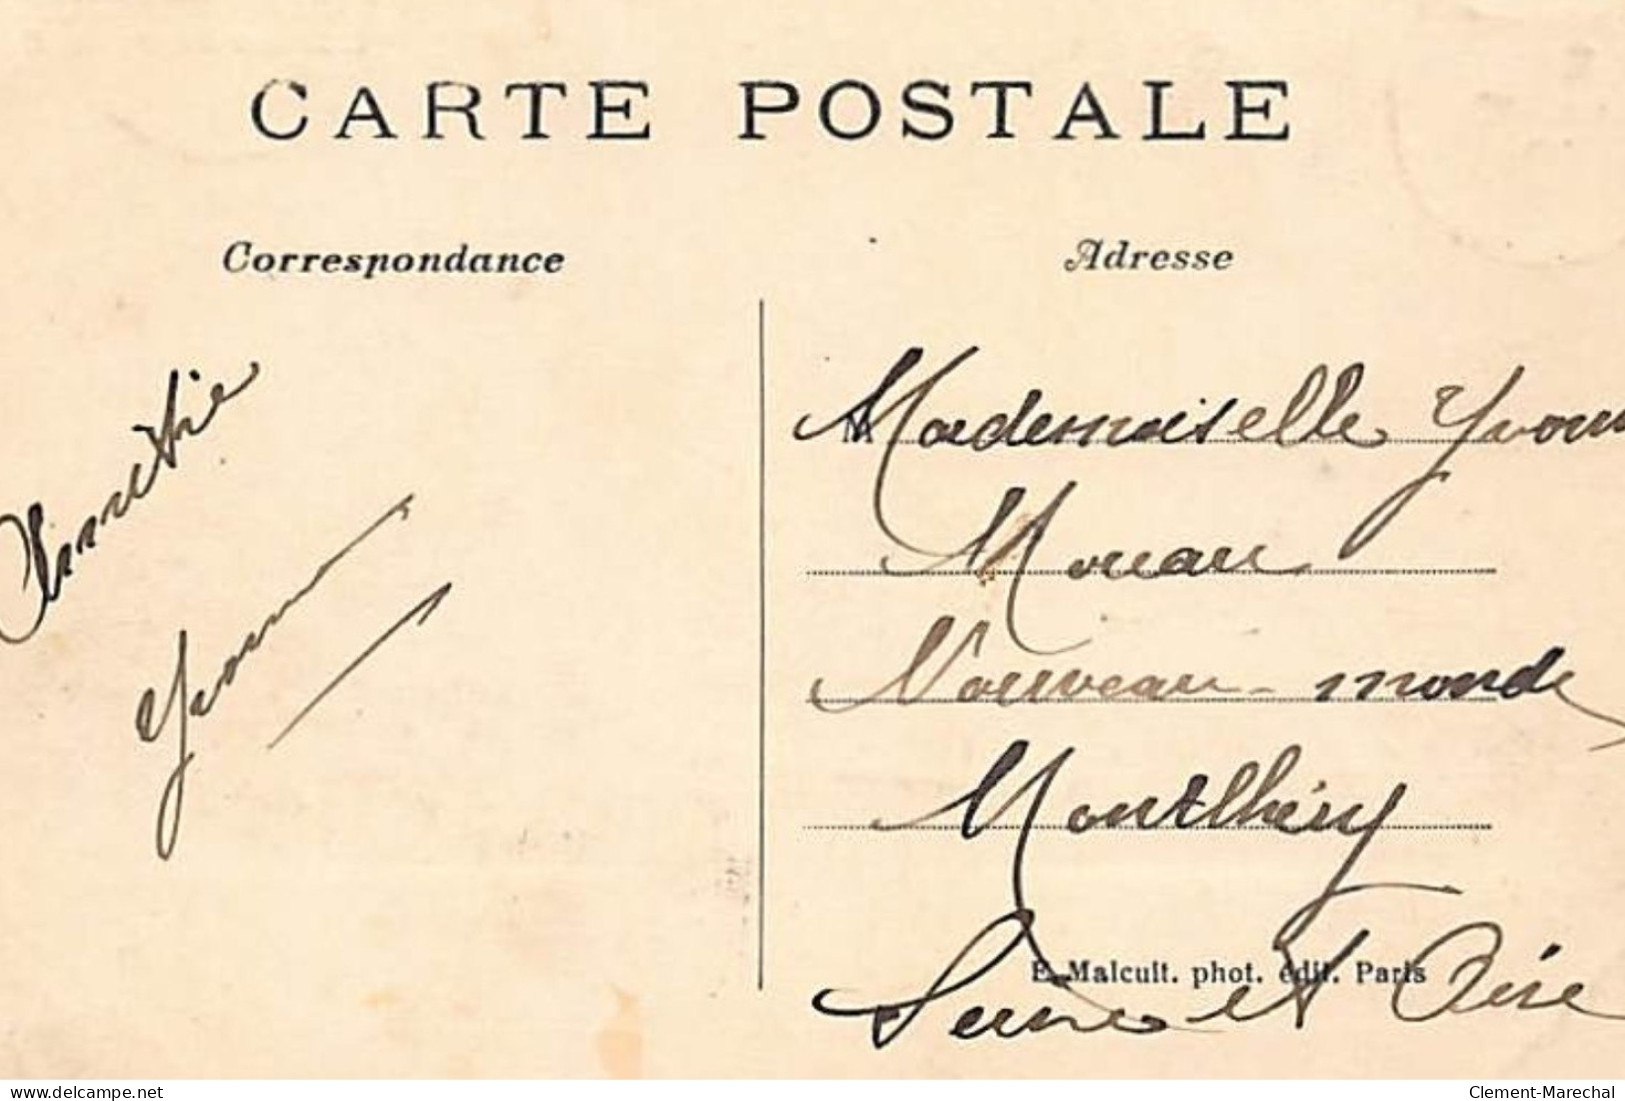 CARTE POSTALE
Correspondance
Adresse
Amitié
Yvonne
Mademoiselle Yvonn
Moreau
Nouveau-monde
Montlhéry
Seine et Oise
E. Malcuit. phot. édit. Paris
delcampe.net
Clement-Marechal